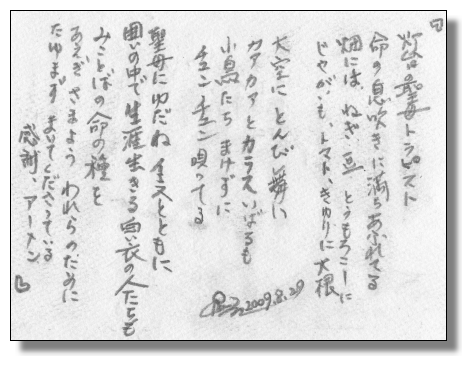 灯台の聖母トラピスト
命の息吹きに満ちあふれてる
畑には、ねぎ、豆、とうもろこしに
じゃがいも、トマト、きゅうりに大根
大空に とんび舞い
カアカアとカラスいばるも
小鳥たち まけずに
チュンチュン唄ってる
聖母にゆだね イエスとともに、
囲いの中で生涯生きる白い衣の人たちも
みことばの命の種を
あえぎ さまよう われらのために
たゆまず まいてくださっている
感謝、アーメン
2009.8.29